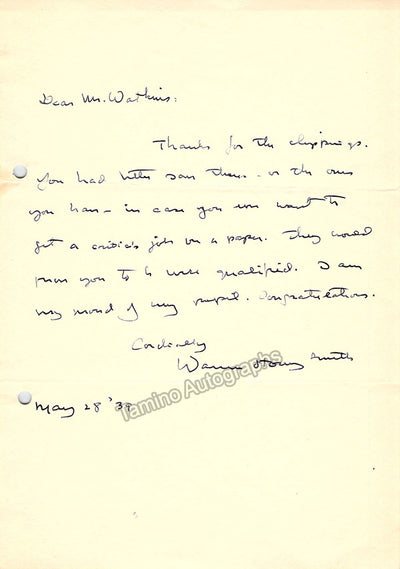 Dear Mr. Watkins:
Thanks for the clippings.
You had better save them - or the ones
you have - in case you ever want to
get a critic's job on a paper. They would
prove you to be well qualified. I am
very proud of my pupil. Congratulations.
Cordially
Warren Storey Smith
Tamino Autographs
May 28 '39